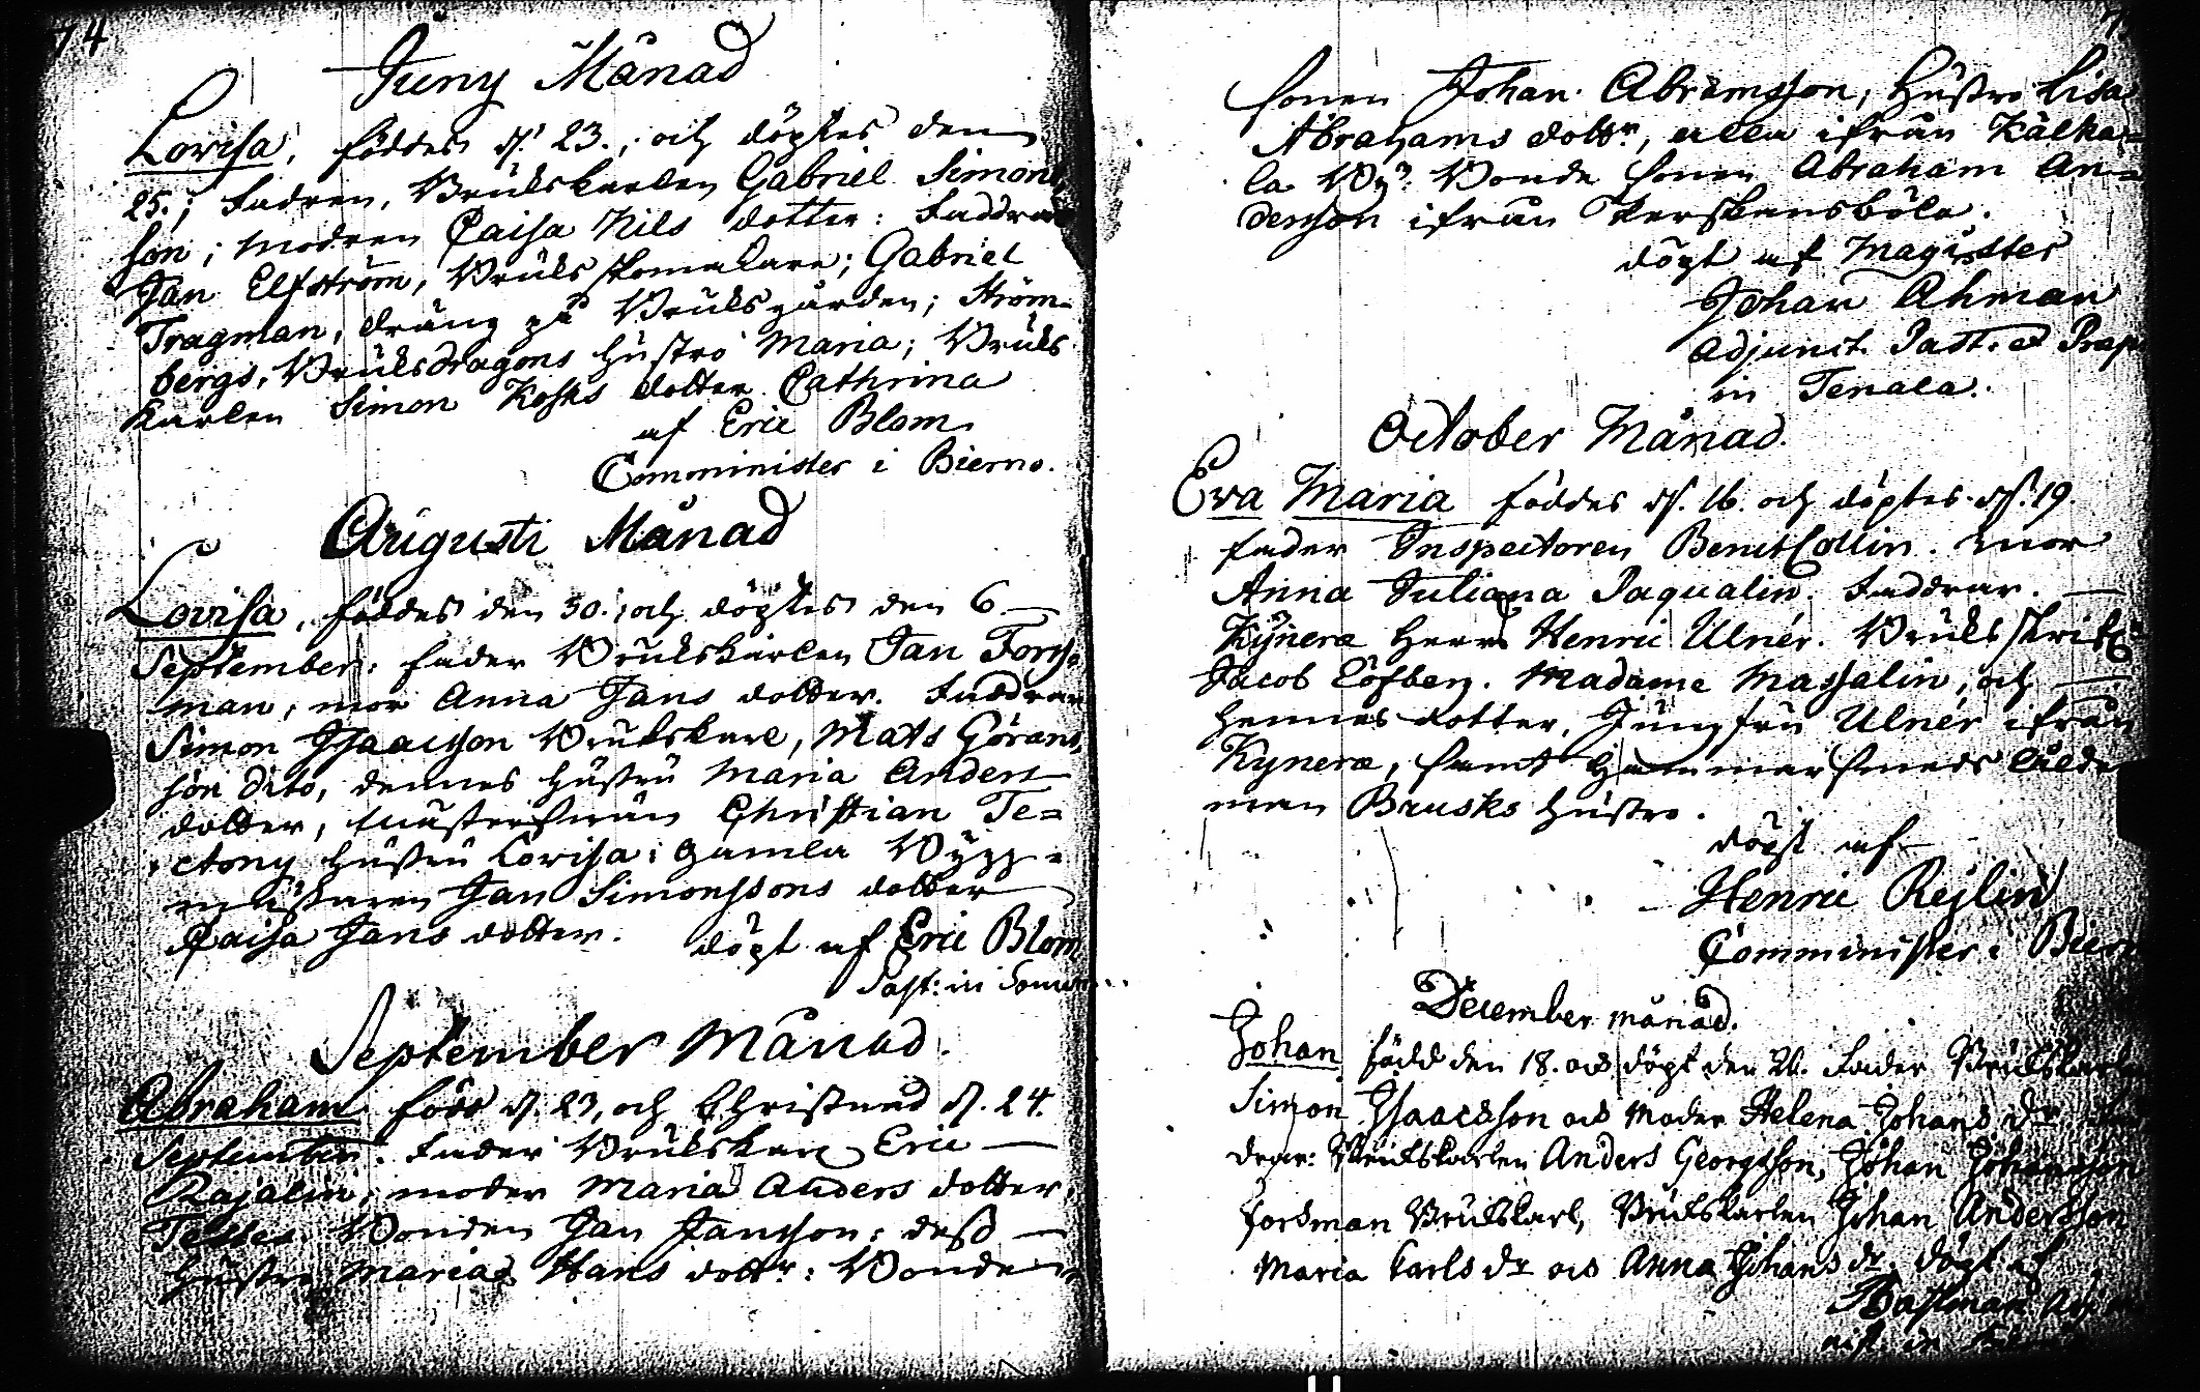 74
Juny Månad
Lovisa, föddes d. 23., och döptes den
25.; Fadren, Brukskarlen Gabriel Simons
son; modren Caisa Nils dotter: Faddrar
Jan Elfström, Bruks skomakare; Gabriel
Tragman, dräng på Bruksgården; Ström-
bergs, Bruksdragons hustro Maria; Bruks
Karlen Simon Kosks dotter Cathrina
af Eric Blom
Comminister i Bierno.
Augusti Månad
Lovisa, föddes den 30., och döptes den 6
September: fader Brukskarlen Jan Fors-
man, mor Anna Jans dotter. Faddrar
Simon Isaacsson Brukskarl, Mats Görans
son dito, dennes hustru Maria Anders
dotter, Christian Te=
ctony hustru Lovisa; gamla Bygg-
mästaren Jan Simonssons dotter
Caisa Jans dotter. döpt af Eric Blom
Past: in
September Månad.
Abraham född d. 23, och Christnad d. 24.
September. Fader Brukskarl Eric
Rajalin, moder Maria Anders dotter,
Testes Bonden Jan Jansson: dess
hustro Maria Hans dottr: Bonde
sonen Johan Abramsson, hustro Lisa
Abrahams dottr, alla ifrån Kålka=
la By: Bonde sonen Abraham An=
dersson ifrån Perskensböle.
döpt af Magister
Johan Ahman
Adjunct. Past. et Præp
in Tenala.
October Månad.
Eva Maria föddes d. 16. och döptes d. 19.
fader Inspectoren Benct Collin. mor
Anna Juliana Paqualin. Faddrar.
Kynera Herr Henric Ulnér. Bruks skrif
Jacob Löfberg. Madame Massalin, och
hennes dotter, Jungfru Ulnér ifrån
Kynera, samt hammarsmeds ålder
man Brusks hustro.
döpt af
Henric Rejlin
Comminister i Biern
December månad.
Johan född den 18. och döpt den 26. Fader Brukskarlen
Simon Isaacsson och Moder Helena Johans dr.
drar: Brukskarlen Anders Georgsson, Johan Johansson
Forsman Brukskarl, Brukskarlen Johan Andersson
Maria Carls dr och Anna Johans dr. döpt af